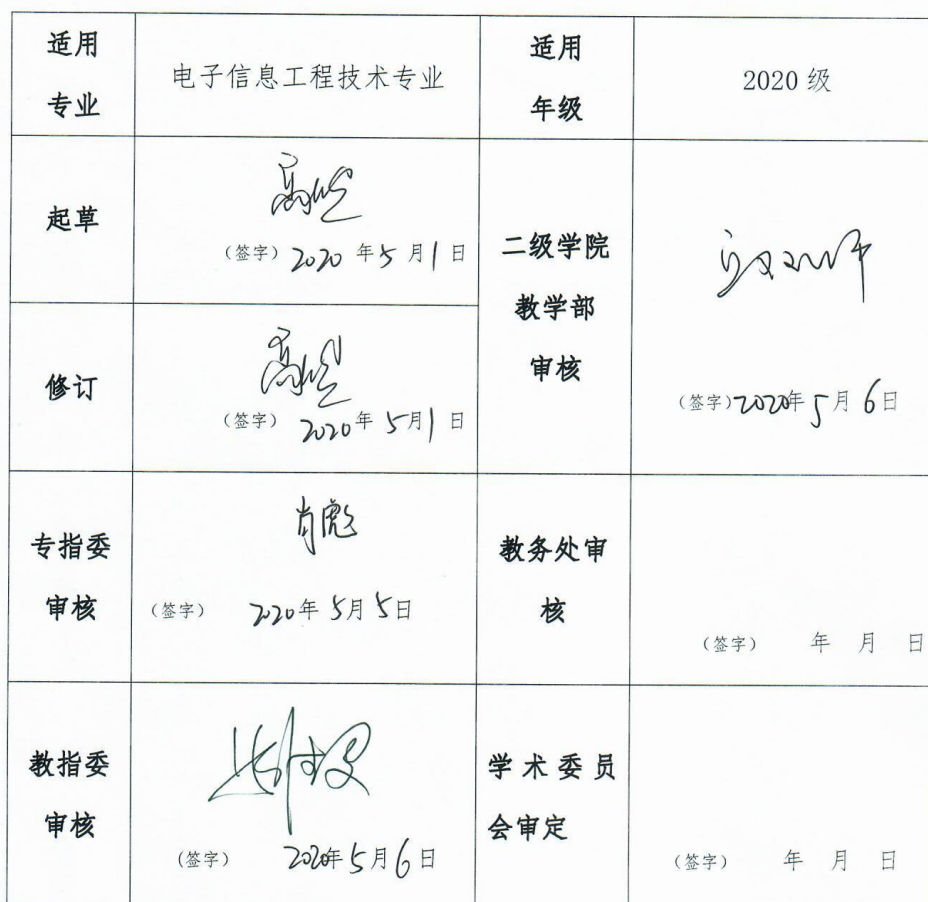 适用
专业
电子信息工程技术专业
适用
年级
2020 级
起草
(签字) 2020 年 5 月 1 日
二级学院
教学部
审核
(签字) 2020年 5 月 6 日
修订
(签字) 2020 年 5月 1 日
专指委
审核
肖彪
(签字) 2020年 5月 5日
教务处审
核
(签字) 年 月 日
教指委
审核
(签字) 2020年 5 月 6 日
学术委员
会审定
(签字) 年 月 日